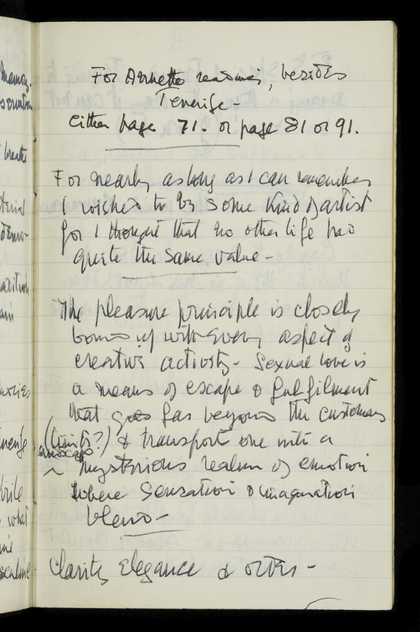 For Annetta reasons, besides
Tenerife -
either page 71. or page 81 or 91.
For nearly as long as I can remember
I wished to be some kind of artist
for I thought that no other life had
quite the same value -
The pleasure principle is closely
bound up with every aspect of
creative activity - Sexual love is
a means of escape & fulfilment
that goes far beyond the customary
(limits?) & transport one into a
mysterious realm of emotion
where sensation & imagination
blend -
Clarity, Elegance & order -